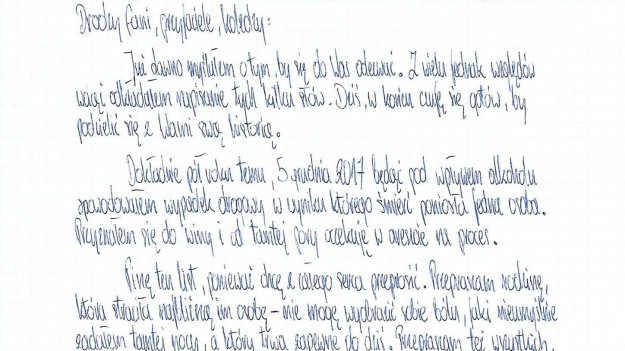 Drodzy fani, przyjaciele, koledzy:
Już dawno myślałem o tym, by się do Was odezwać. Z wielu jednak względów
wciąż odkładałem napisanie tych kilku słów. Dziś, w końcu czuję się gotów, by
podzielić się z Wami swą historią.
Dokładnie pół roku temu, 5 grudnia 2017 będąc pod wpływem alkoholu
spowodowałem wypadek drogowy w wyniku którego śmierć poniosła jedna osoba.
Przyznałem się do winy i od tamtej pory oczekuję w areszcie na proces.
Piszę ten list, ponieważ chcę z całego serca przeprosić. Przepraszam rodzinę,
która straciła najbliższą im osobę – nie mogę wyobrazić sobie bólu, jaki nieumyślnie
zadałem tamtej nocy, a który trwa zapewne do dziś. Przepraszam też wszystkich,